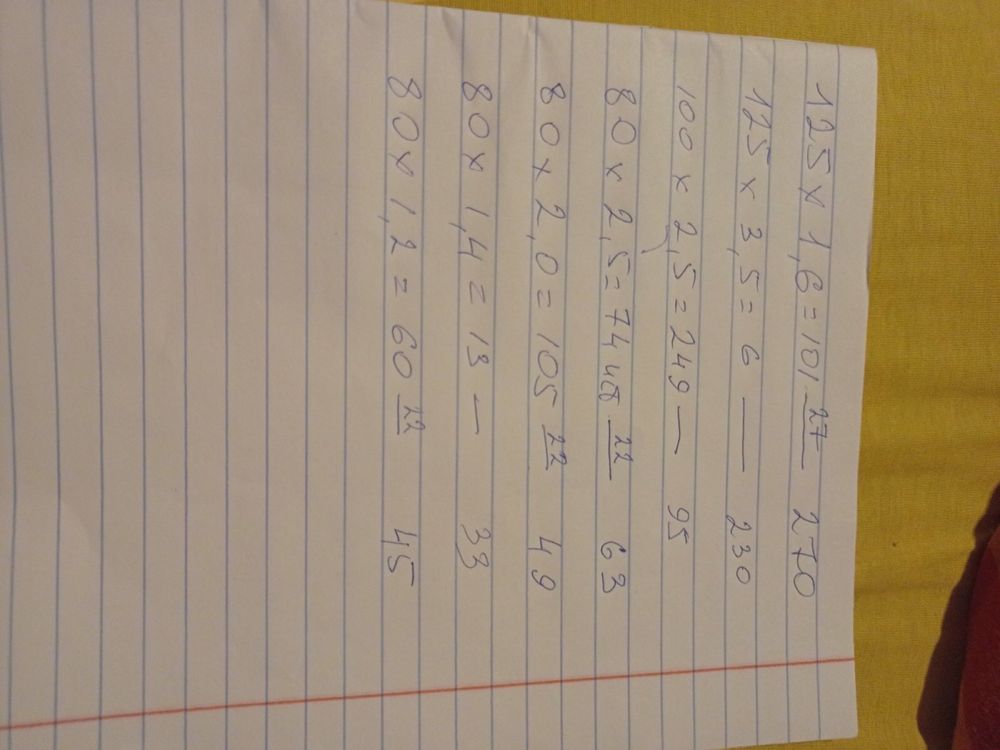 125 x 1,6 = 101 27 270
125 x 3,5 = 6 — 230
100 x 2,5 = 249 — 95
80 x 2,5 = 74 48 22 63
80 x 2,0 = 105 22 49
80 x 1,4 = 13 — 33
80 x 1,2 = 60 22 45